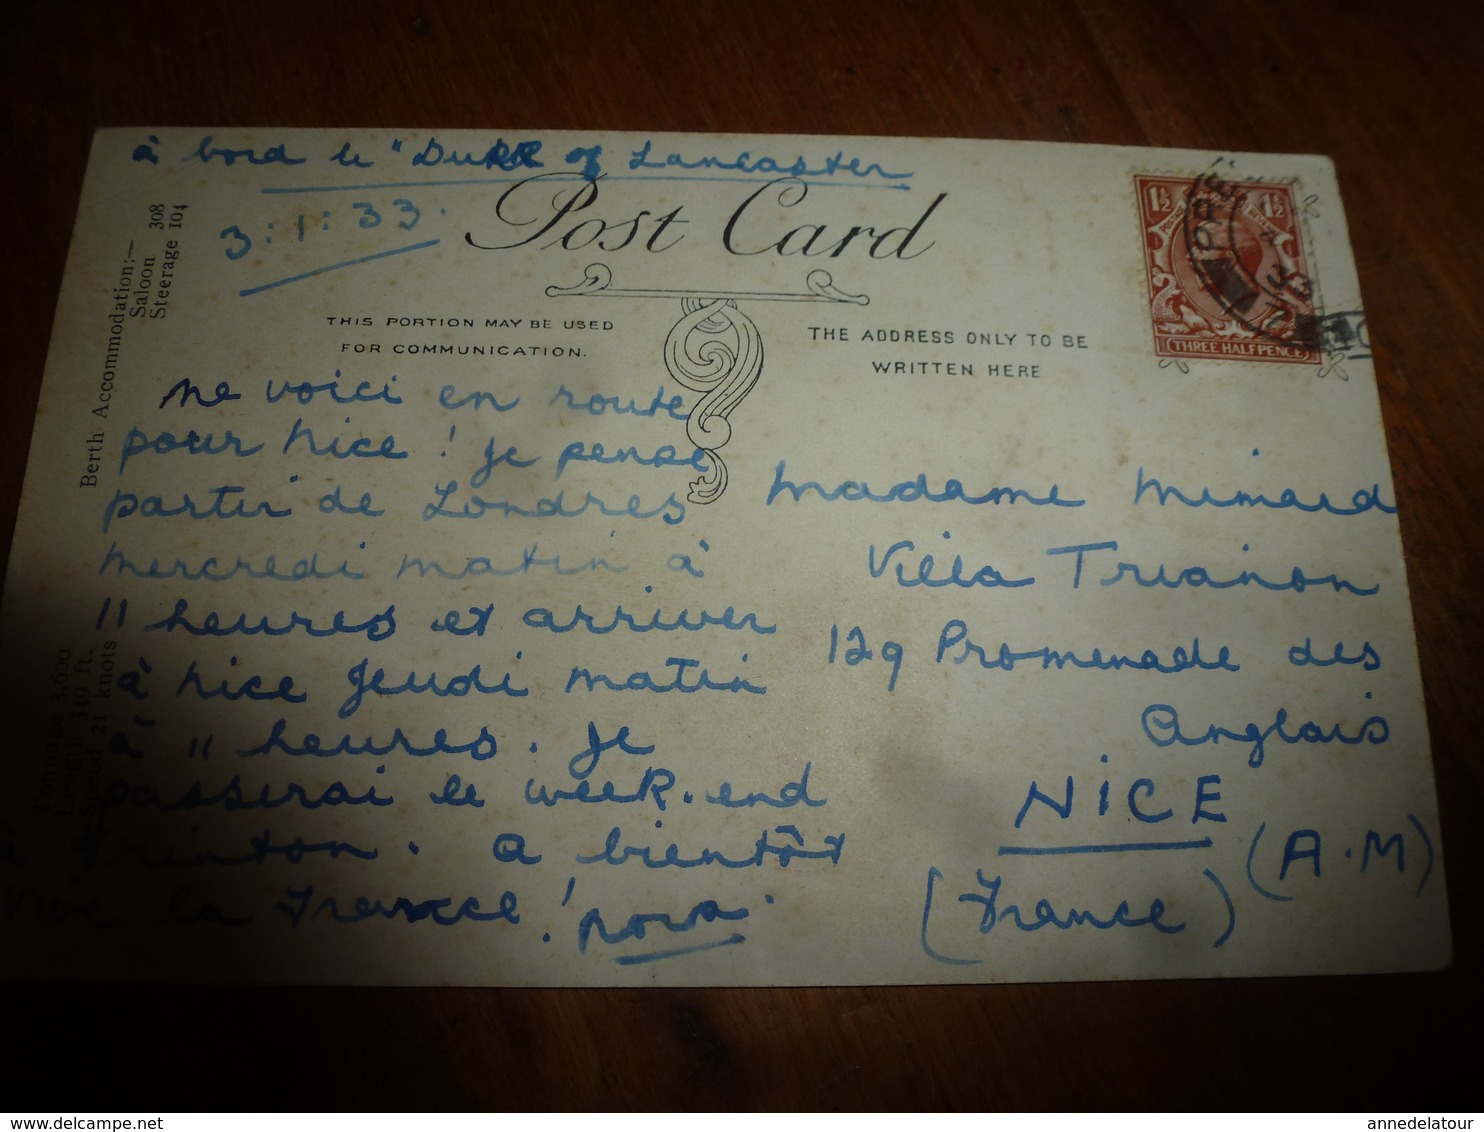 à bord le "Duke of Lancaster
3:1:33.
Post Card
THIS PORTION MAY BE USED
FOR COMMUNICATION.
THE ADDRESS ONLY TO BE
WRITTEN HERE
Berth Accommodation:—
Saloon 308
Steerage 104
Tonnage 3,600
Length 349 ft.
Speed 21 knots
1½ 1½
(THREE HALFPENCE)
33
me voici en route
pour Nice! Je pense
partir de Londres
mercredi matin à
11 heures et arriver
à Nice Jeudi matin
à 11 heures. Je
passerai le week-end
à Frinton. A bientôt
Vive la France!
Nora.
Madame Mimard
Villa Trianon
129 Promenade des
Anglais
NICE
(A.M)
(France)
http://www.delcampe.net
annedelatour